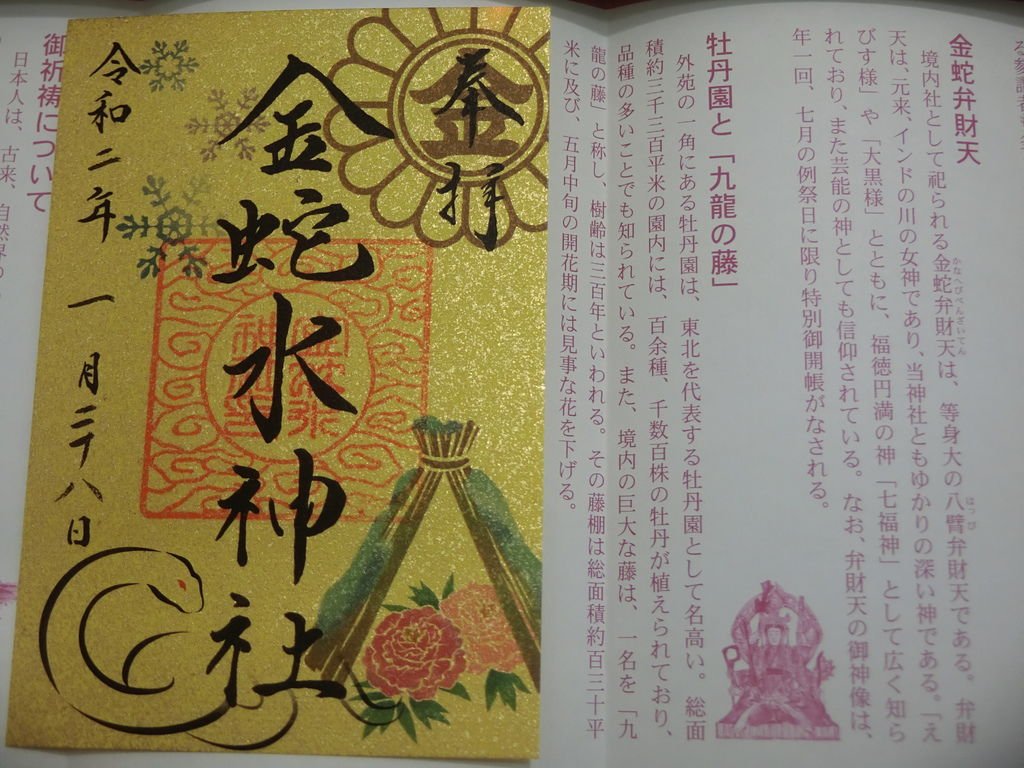 る参詣者も多
金蛇弁財天
境内社として祀られる金蛇弁財天は、等身大の八臂弁財天である。弁財
かなへびべんざいてん
はっぴ
天は、元来、インドの川の女神であり、当神社ともゆかりの深い神である。「え
びす様」や「大黒様」とともに、福徳円満の神「七福神」として広く知ら
れており、また芸能の神としても信仰されている。なお、弁財天の御神像は、
年一回、七月の例祭日に限り特別御開帳がなされる。
牡丹園と「九龍の藤」
外苑の一角にある牡丹園は、東北を代表する牡丹園として名高い。総面
積約三千三百平米の園内には、百余種、千数百株の牡丹が植えられており、
品種の多いことでも知られている。また、境内の巨大な藤は、一名を「九
龍の藤」と称し、樹齢は三百年といわれる。その藤棚は総面積約百三十平
米に及び、五月中旬の開花期には見事な花を下げる。
奉拝
金
金蛇水神社
令和二年 一月二十八日
御祈祷について
日本人は、古来、自然界の